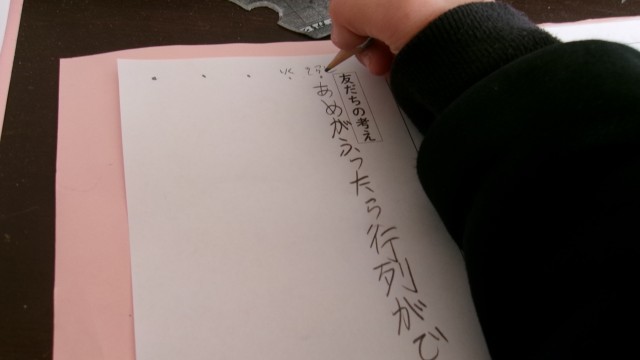 友だちの考え
あめがふったら行列がで